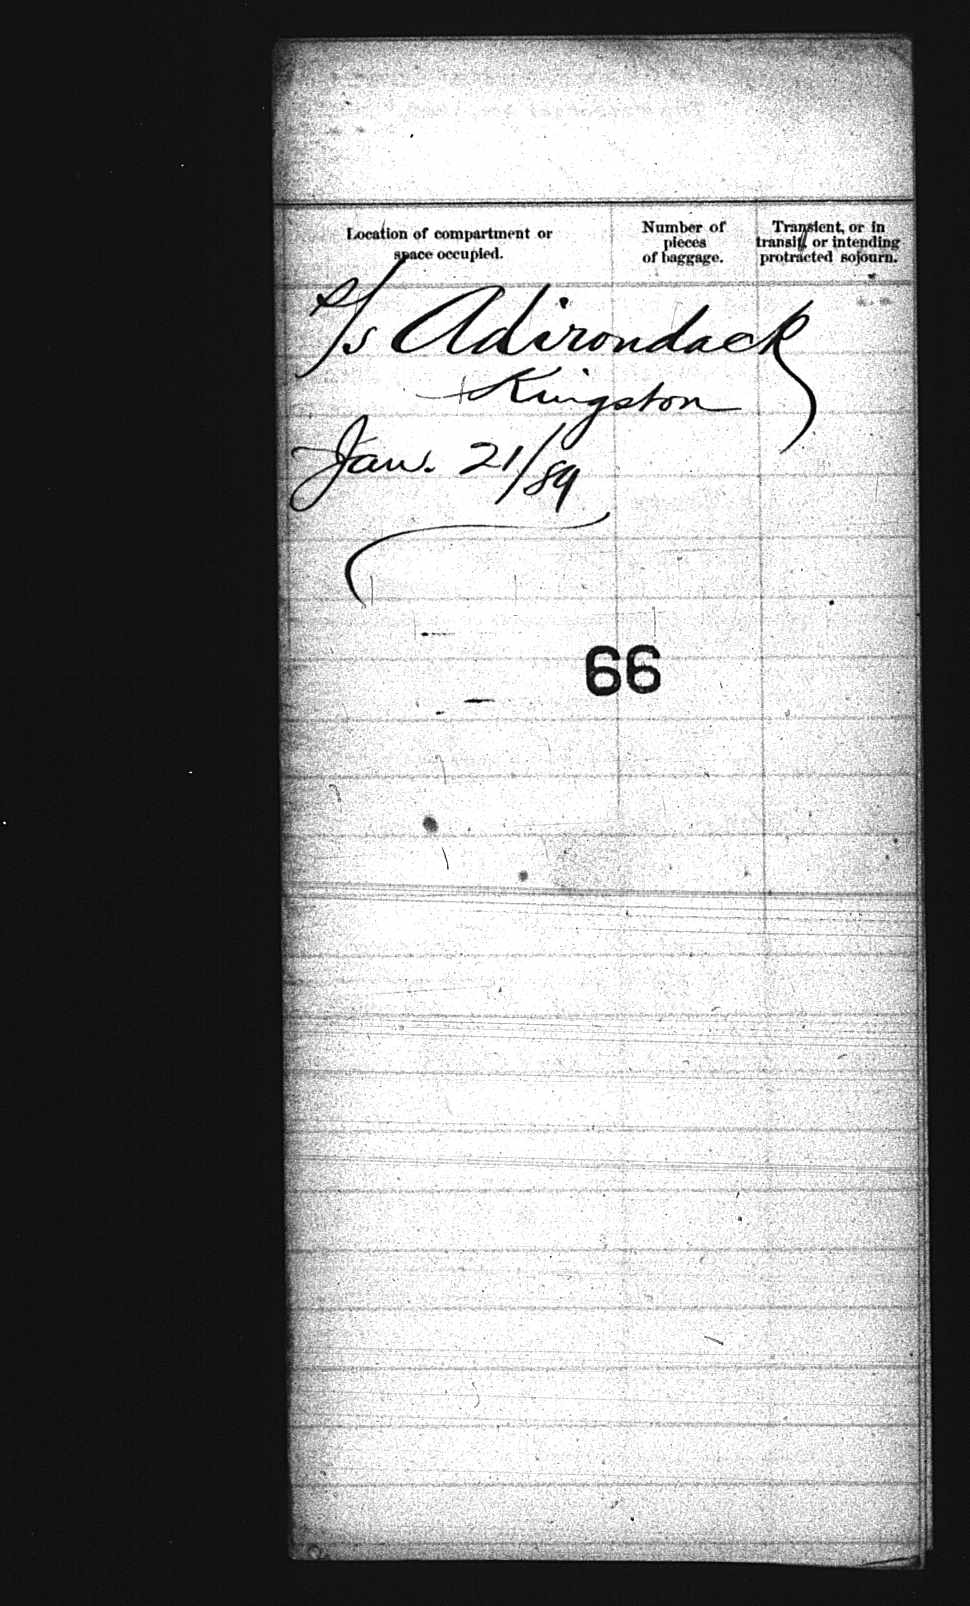 Location of compartment or
space occupied.
Number of
pieces
of baggage.
Transient, or in
transit, or intending
protracted sojourn.
S/s Adirondack
Kingston
Jan. 21/89
66